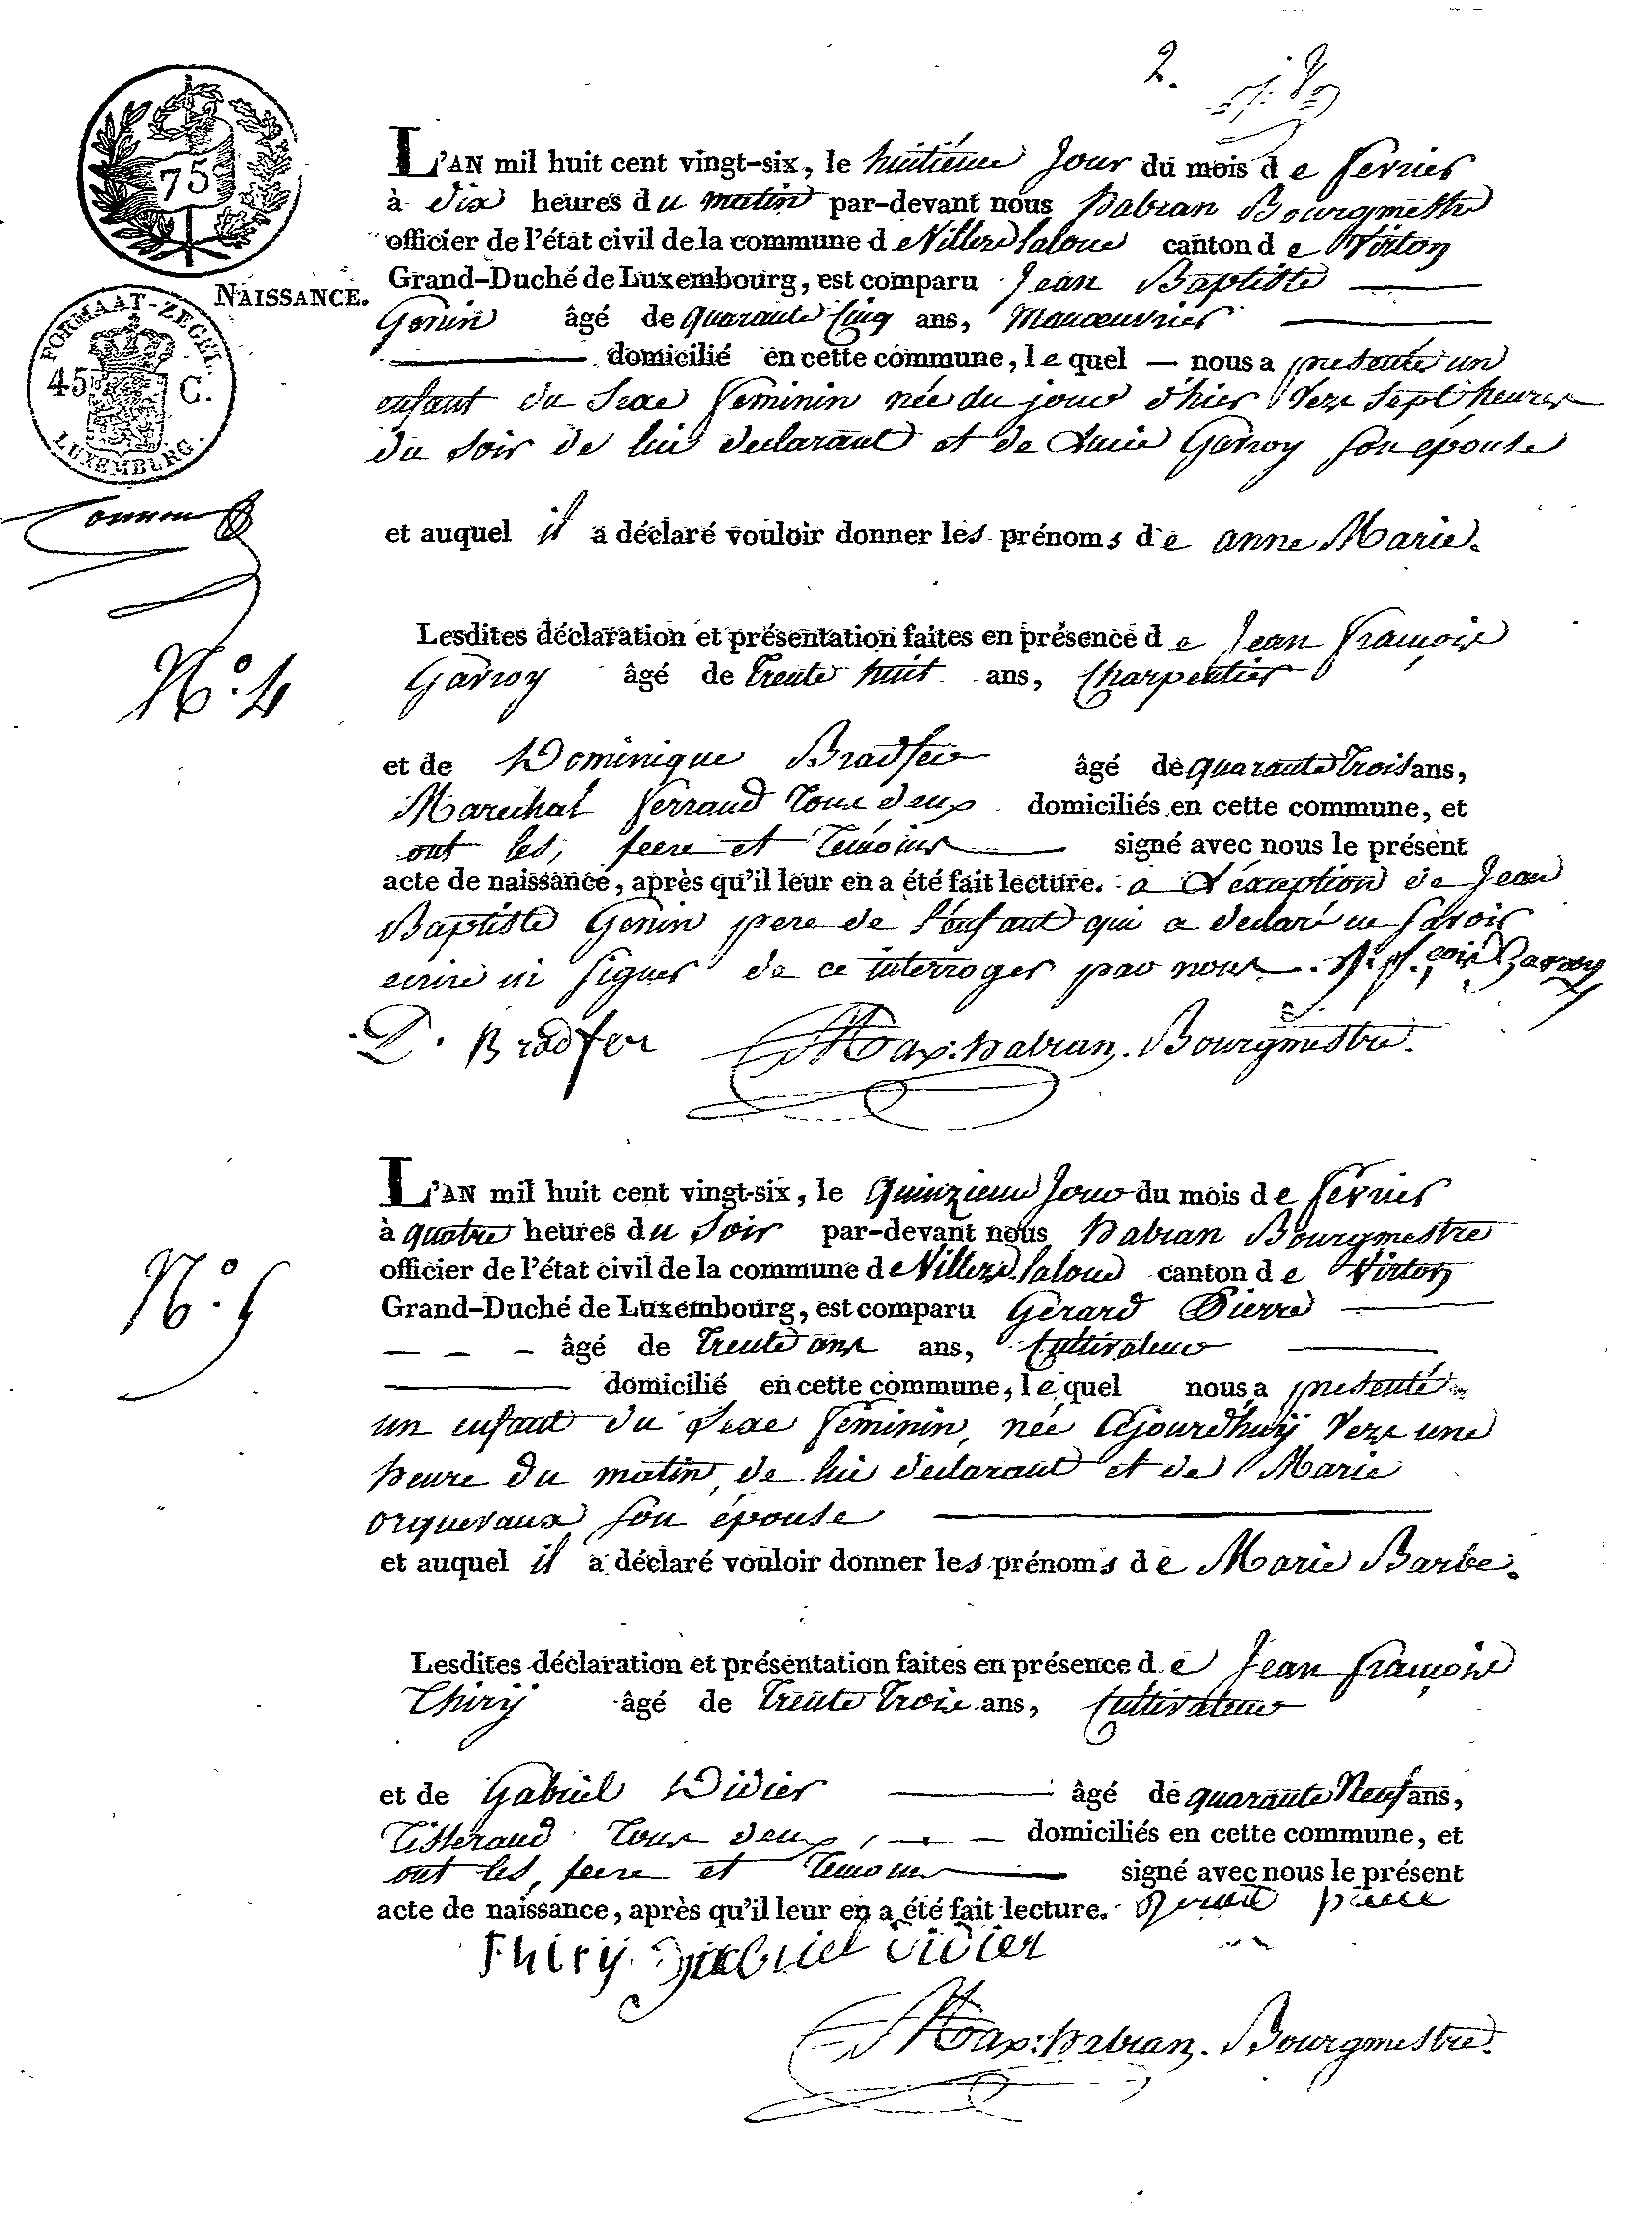 2.
75
L'AN mil huit cent vingt-six, le huitième Jour du mois de fevrier
à dix heures du matin par-devant nous habran Bourgmestre
officier de l'état civil de la commune de Villers laloue canton de Virton
NAISSANCE.
Grand-Duché de Luxembourg, est comparu Jean Baptiste
FORMAAT-ZEGEL.
45 C.
LUXEMBURG.
Gonin âgé de quarante Cinq ans, Manoeuvrier
domicilié en cette commune, le quel nous a presenté un
enfant du Sexe feminin née du jour d'hier Vers sept heures
du soir de lui declarant et de Garroy son épouse
et auquel il a déclaré vouloir donner les prénoms de anne Marie.
Lesdites déclaration et présentation faites en présence de Jean François
N.o 4
Garroy âgé de Trente huit ans, Charpentier
et de Dominique Bradfer âgé de quarante Trois ans,
Marechal ferrand Tous deux domiciliés en cette commune, et
ont les, peere et Témoins signé avec nous le présent
acte de naissance, après qu'il leur en a été fait lecture. a L'exception de Jean
Baptiste Gonin pere de l'enfant qui a declaré ne savoir
ecrire ni signer de ce interroger par nous. Garroy
D. Bradfer Max: habran, Bourgmestre.
L'AN mil huit cent vingt-six, le Quinzieme Jour du mois de fevrier
à quatre heures du Soir par-devant nous habran Bourgmestre
officier de l'état civil de la commune de Villers laloue canton de Virton
N.o 5
Grand-Duché de Luxembourg, est comparu Gerard Pierre
âgé de Trente ans ans, Cultivateur
domicilié en cette commune, le quel nous a presenté
un enfant du Sexe feminin, née Ajourd'huij Vers une
heure du matin, de lui declarant et de Marie
orquevaux son épouse
et auquel il a déclaré vouloir donner les prénoms de Marie Barbe.
Lesdites déclaration et présentation faites en présence de Jean François
Thirij âgé de Trente Trois ans, Cultivateur
et de Gabriel Didier âgé de quarante Neuf ans,
Tisserand Tous deux, domiciliés en cette commune, et
ont les, peere et Temoins signé avec nous le présent
acte de naissance, après qu'il leur en a été fait lecture. Gerard pierre
Thirij. Gabriel Didier
Max: habran. Bourgmestre.